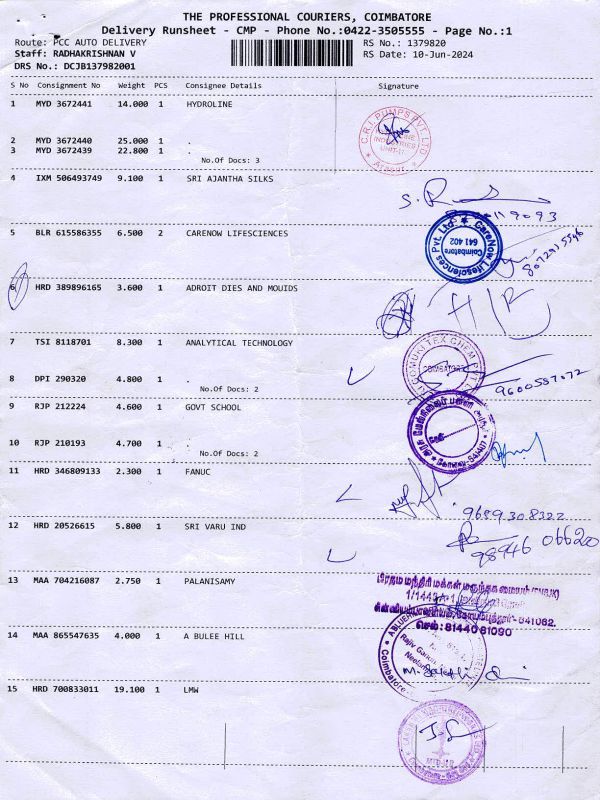 THE PROFESSIONAL COURIERS, COIMBATORE
Delivery Runsheet - CMP - Phone No.:0422-3505555 - Page No.:1
Route: PCC AUTO DELIVERY
RS No.: 1379820
Staff: RADHAKRISHNAN V
RS Date: 10-Jun-2024
DRS No.: DCJB137982001
S No Consignment No Weight PCS Consignee Details Signature
1 MYD 3672441 14.000 1 HYDROLINE
C.R.I. PUMPS PVT. LTD
UNIT-
2 MYD 3672440 25.000 1 .
3 MYD 3672439 22.800 1 .
No.Of Docs: 3
4 IXM 506493749 9.100 1 SRI AJANTHA SILKS
5 BLR 615586355 6.500 2 CARENOW LIFESCIENCES
CareNow Lifesciences Pvt. Ltd.
Coimbatore
641 402
6 HRD 389896165 3.600 1 ADROIT DIES AND MOUIDS
7 TSI 8118701 8.300 1 ANALYTICAL TECHNOLOGY
COIMBATORE
8 DPI 290320 4.800 1 .
No.Of Docs: 2
9600587072
9 RJP 212224 4.600 1 GOVT SCHOOL
10 RJP 210193 4.700 1 .
No.Of Docs: 2
11 HRD 346809133 2.300 1 FANUC
9689308322
12 HRD 20526615 5.800 1 SRI VARU IND
98946 06620
13 MAA 704216087 2.750 1 PALANISAMY
பிரதம மந்திரி மக்கள் மருந்தக மையம்
1/1442A-1,
641062.
செல் : 81440 81090
14 MAA 865547635 4.000 1 A BULEE HILL
Rajiv Gandhi
Coimbatore
15 HRD 700833011 19.100 1 LMW